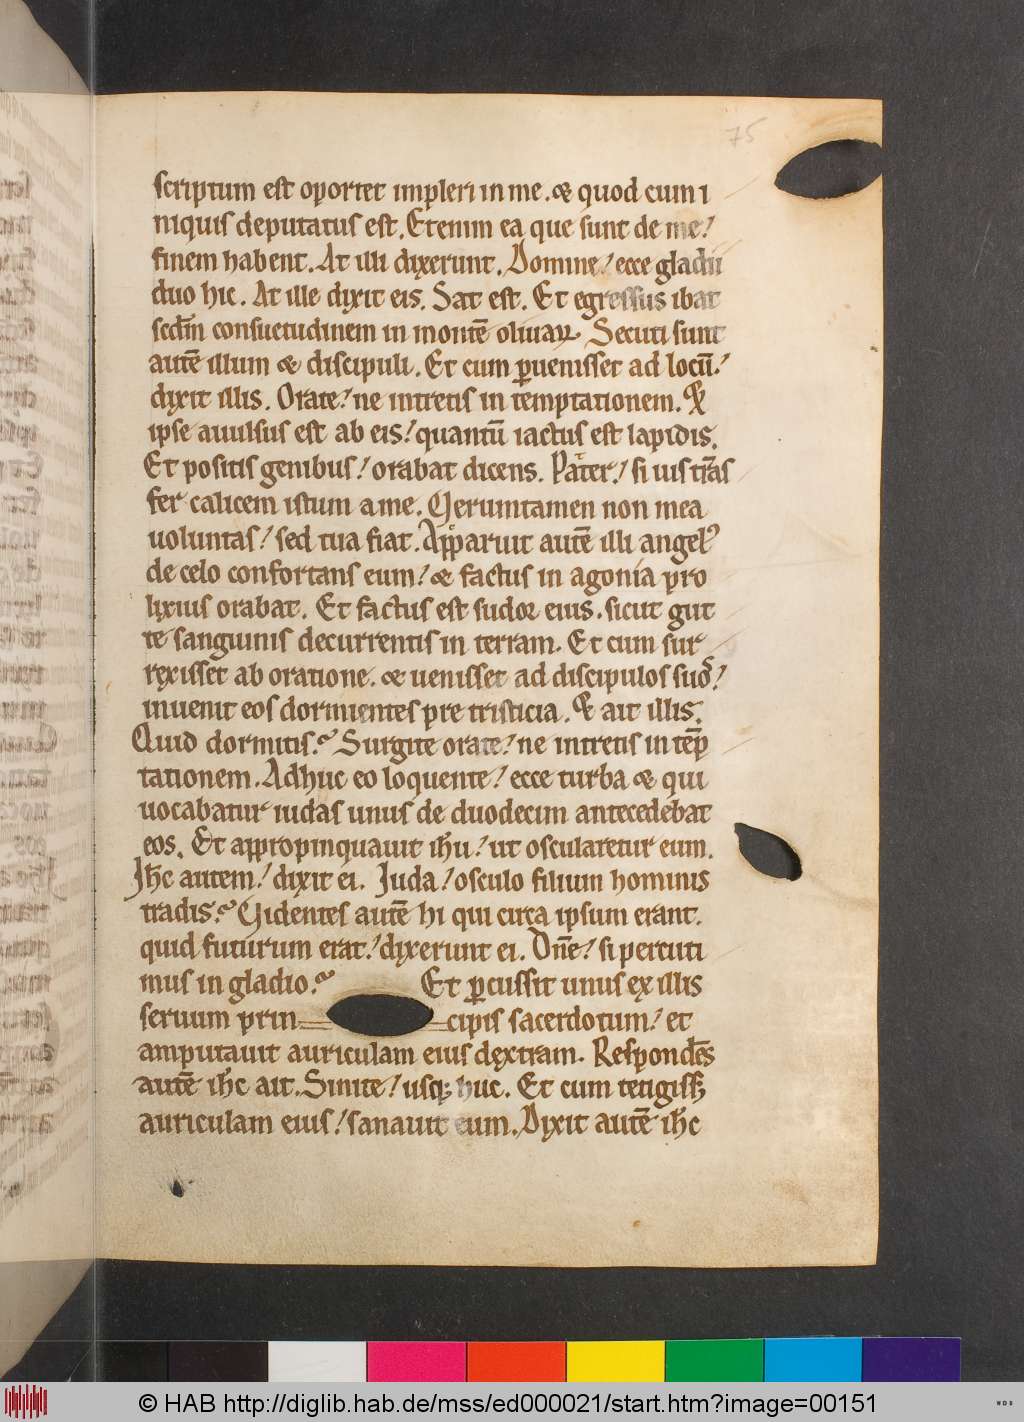 75
scriptum est oportet impleri in me. & quod cum i
niquis deputatus est. Etenim ea que sunt de me!
finem habent. At illi dixerunt. Domine! ecce gladii
duo hic. At ille dixit eis. Sat est. Et egressus ibat
scdm̄ consuetudinem in montē oliuaꝝ. Secuti sunt
autē illum & discipuli. Et cum ꝑuenisset ad locū!
dixit illis. Orate! ne intretis in temptationem. &
ipse auulsus est ab eis! quantū iactus est lapidis.
Et positis genibus! orabat dicens. Pater! si uis trās
fer calicem istum a me. Ueruntamen non mea
uoluntas! sed tua fiat. Apparuit autē illi angelꝰ
de celo confortans eum! & factus in agonia pro
lixius orabat. Et factus est sudor eius. sicut gut
te sanguinis decurrentis in terram. Et cum sur
rexisset ab oratione. & uenisset ad discipulos suos!
inuenit eos dormientes pre tristicia. & ait illis.
Quid dormitis? Surgite orate! ne intretis in tēp
tationem. Adhuc eo loquente! ecce turba & qui
uocabatur iudas unus de duodecim antecedebat
eos. Et appropinquauit ihū! ut oscularetur eum.
Ihc̄ autem! dixit ei. Iuda! osculo filium hominis
tradis? Uidentes autē hi qui circa ipsum erant.
quid futurum erat! dixerunt ei. Dn̄e! si percuti
mus in gladio? Et ꝑcussit unus ex illis
seruum prin cipis sacerdotum! et
amputauit auriculam eius dextram. Respondēs
autē ihc̄ ait. Sinite! usqꝫ huc. Et cum tetigissꝫ
auriculam eius! sanauit eum. Dixit autē ihc̄
© HAB http://diglib.hab.de/mss/ed000021/start.htm?image=00151